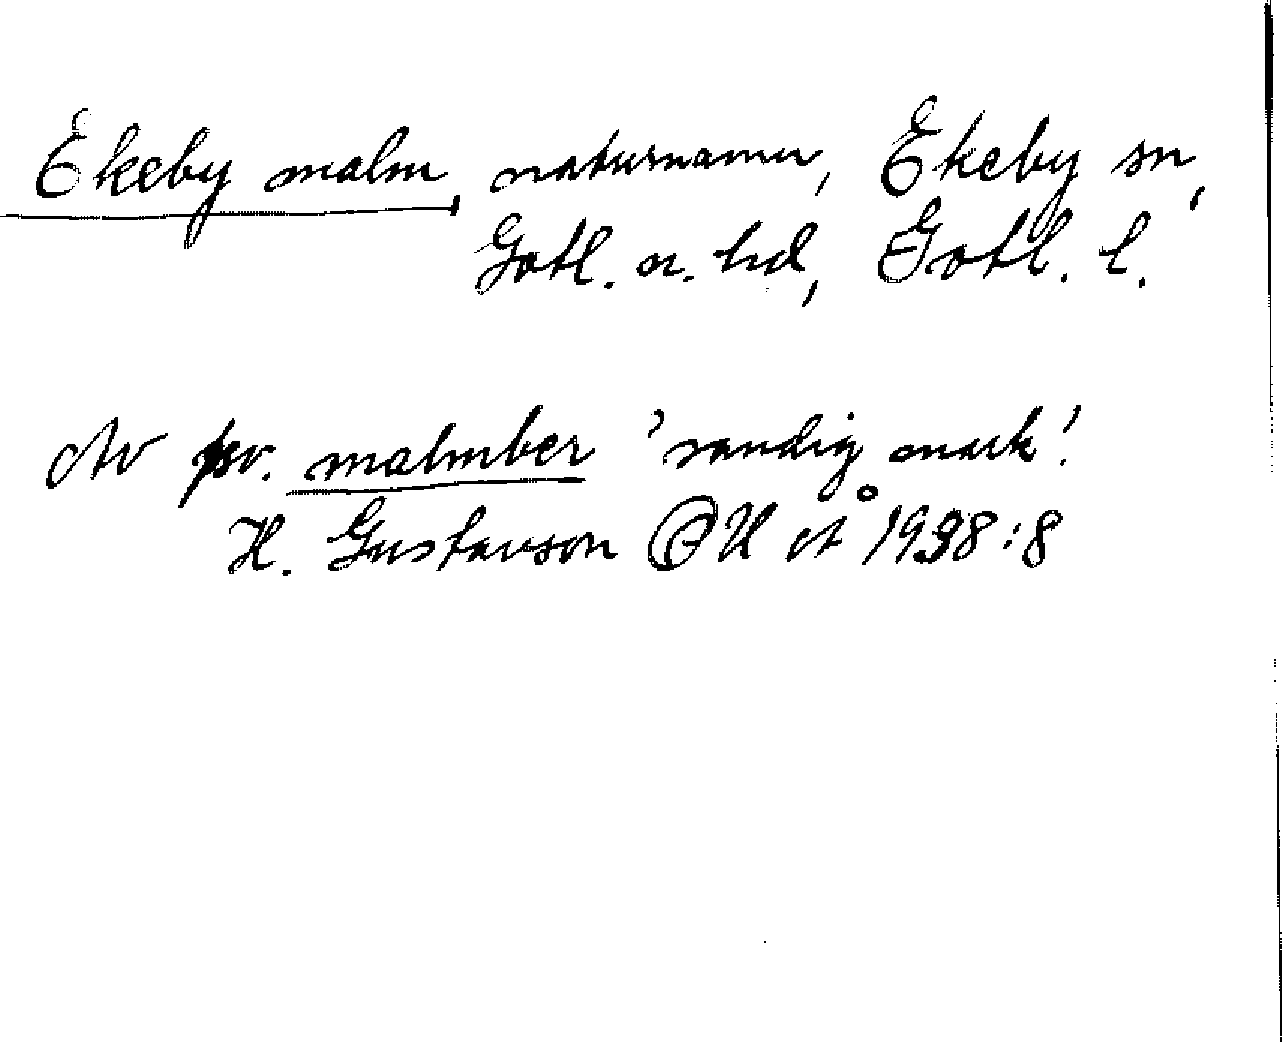 Ekeby malm, naturnamn, Ekeby sn,
Gotl. n. hd, Gotl. l.
Av sv. malmber 'sandig mark'.
H. Gustavson GU å 1938:8